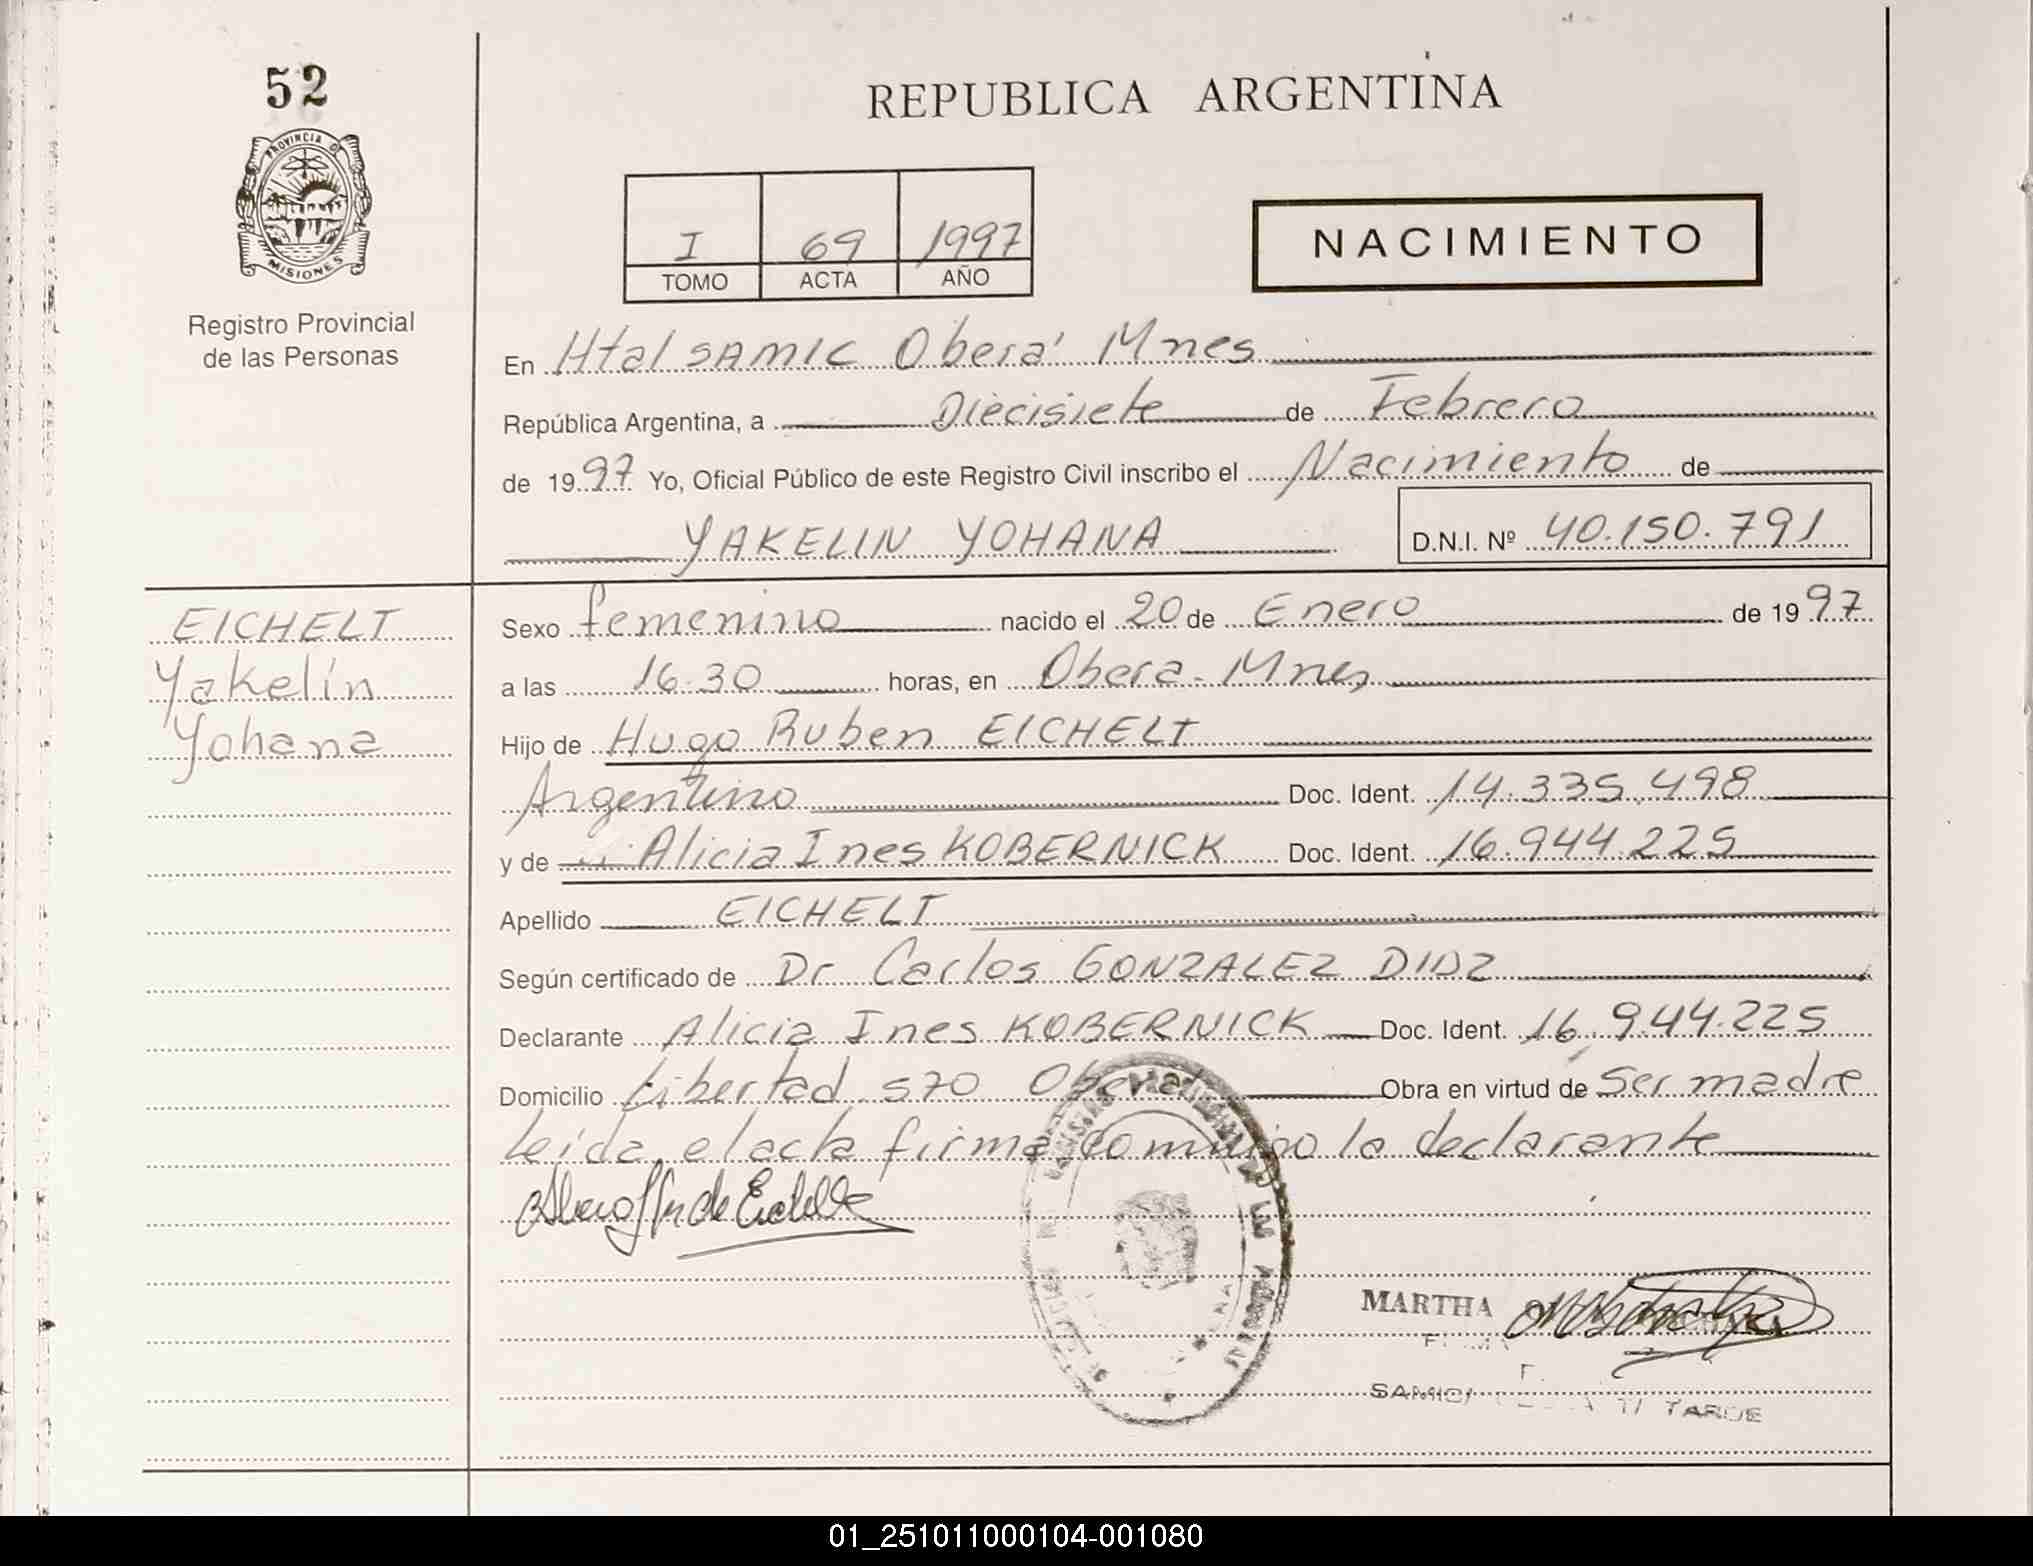 52
PROVINCIA DE
MISIONES
Registro Provincial
de las Personas
REPUBLICA ARGENTINA
I 69 1997
TOMO ACTA AÑO
NACIMIENTO
En Htal SAMIC Oberá Mnes
República Argentina, a Diecisiete de Febrero
de 1997 Yo, Oficial Público de este Registro Civil inscribo el Nacimiento de
YAKELIN YOHANA D.N.I. Nº 40.150.791
EICHELT
Yakelin
Yohana
Sexo femenino nacido el 20 de Enero de 1997
a las 16.30 horas, en Obera - Mnes
Hijo de Hugo Ruben EICHELT
Argentino Doc. Ident. 14.335.498
y de Alicia Ines KOBERNICK Doc. Ident. 16.944.225
Apellido EICHELT
Según certificado de Dr Carlos GONZALEZ DIAZ
Declarante Alicia Ines KOBERNICK Doc. Ident. 16.944.225
Domicilio Libertad 570 Obera Obra en virtud de ser madre
leida el acta firma conmigo la declarante
de Eichelt
MARTHA
SAMIC TARDE
01_251011000104-001080